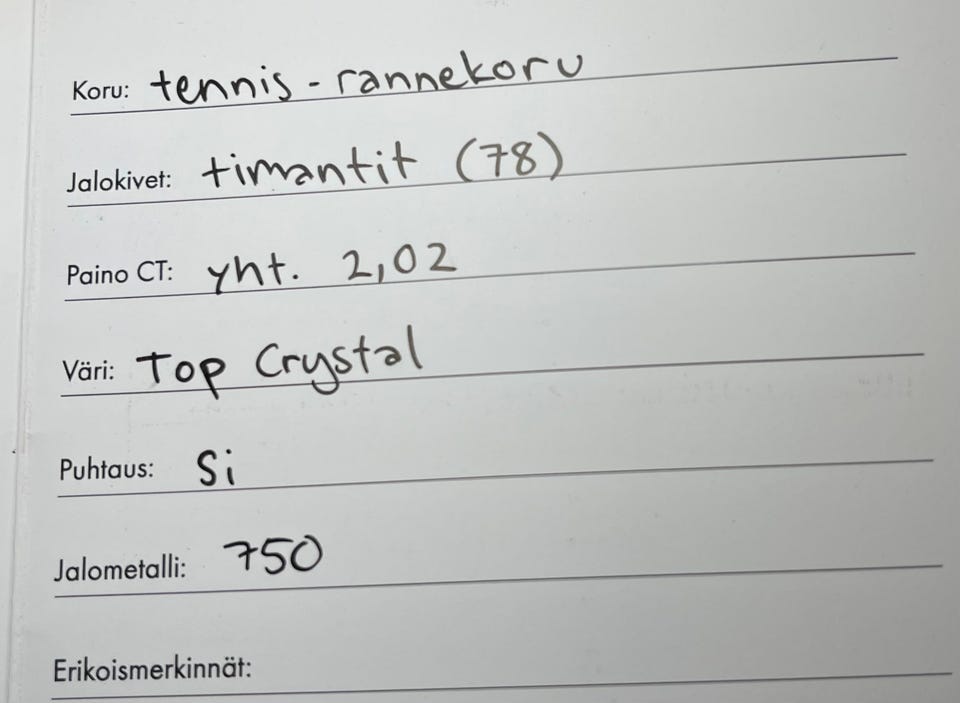 Koru: tennis - rannekoru
Jalokivet: timantit (78)
Paino CT: yht. 2,02
Väri: Top Crystal
Puhtaus: Si
Jalometalli: 750
Erikoismerkinnät: